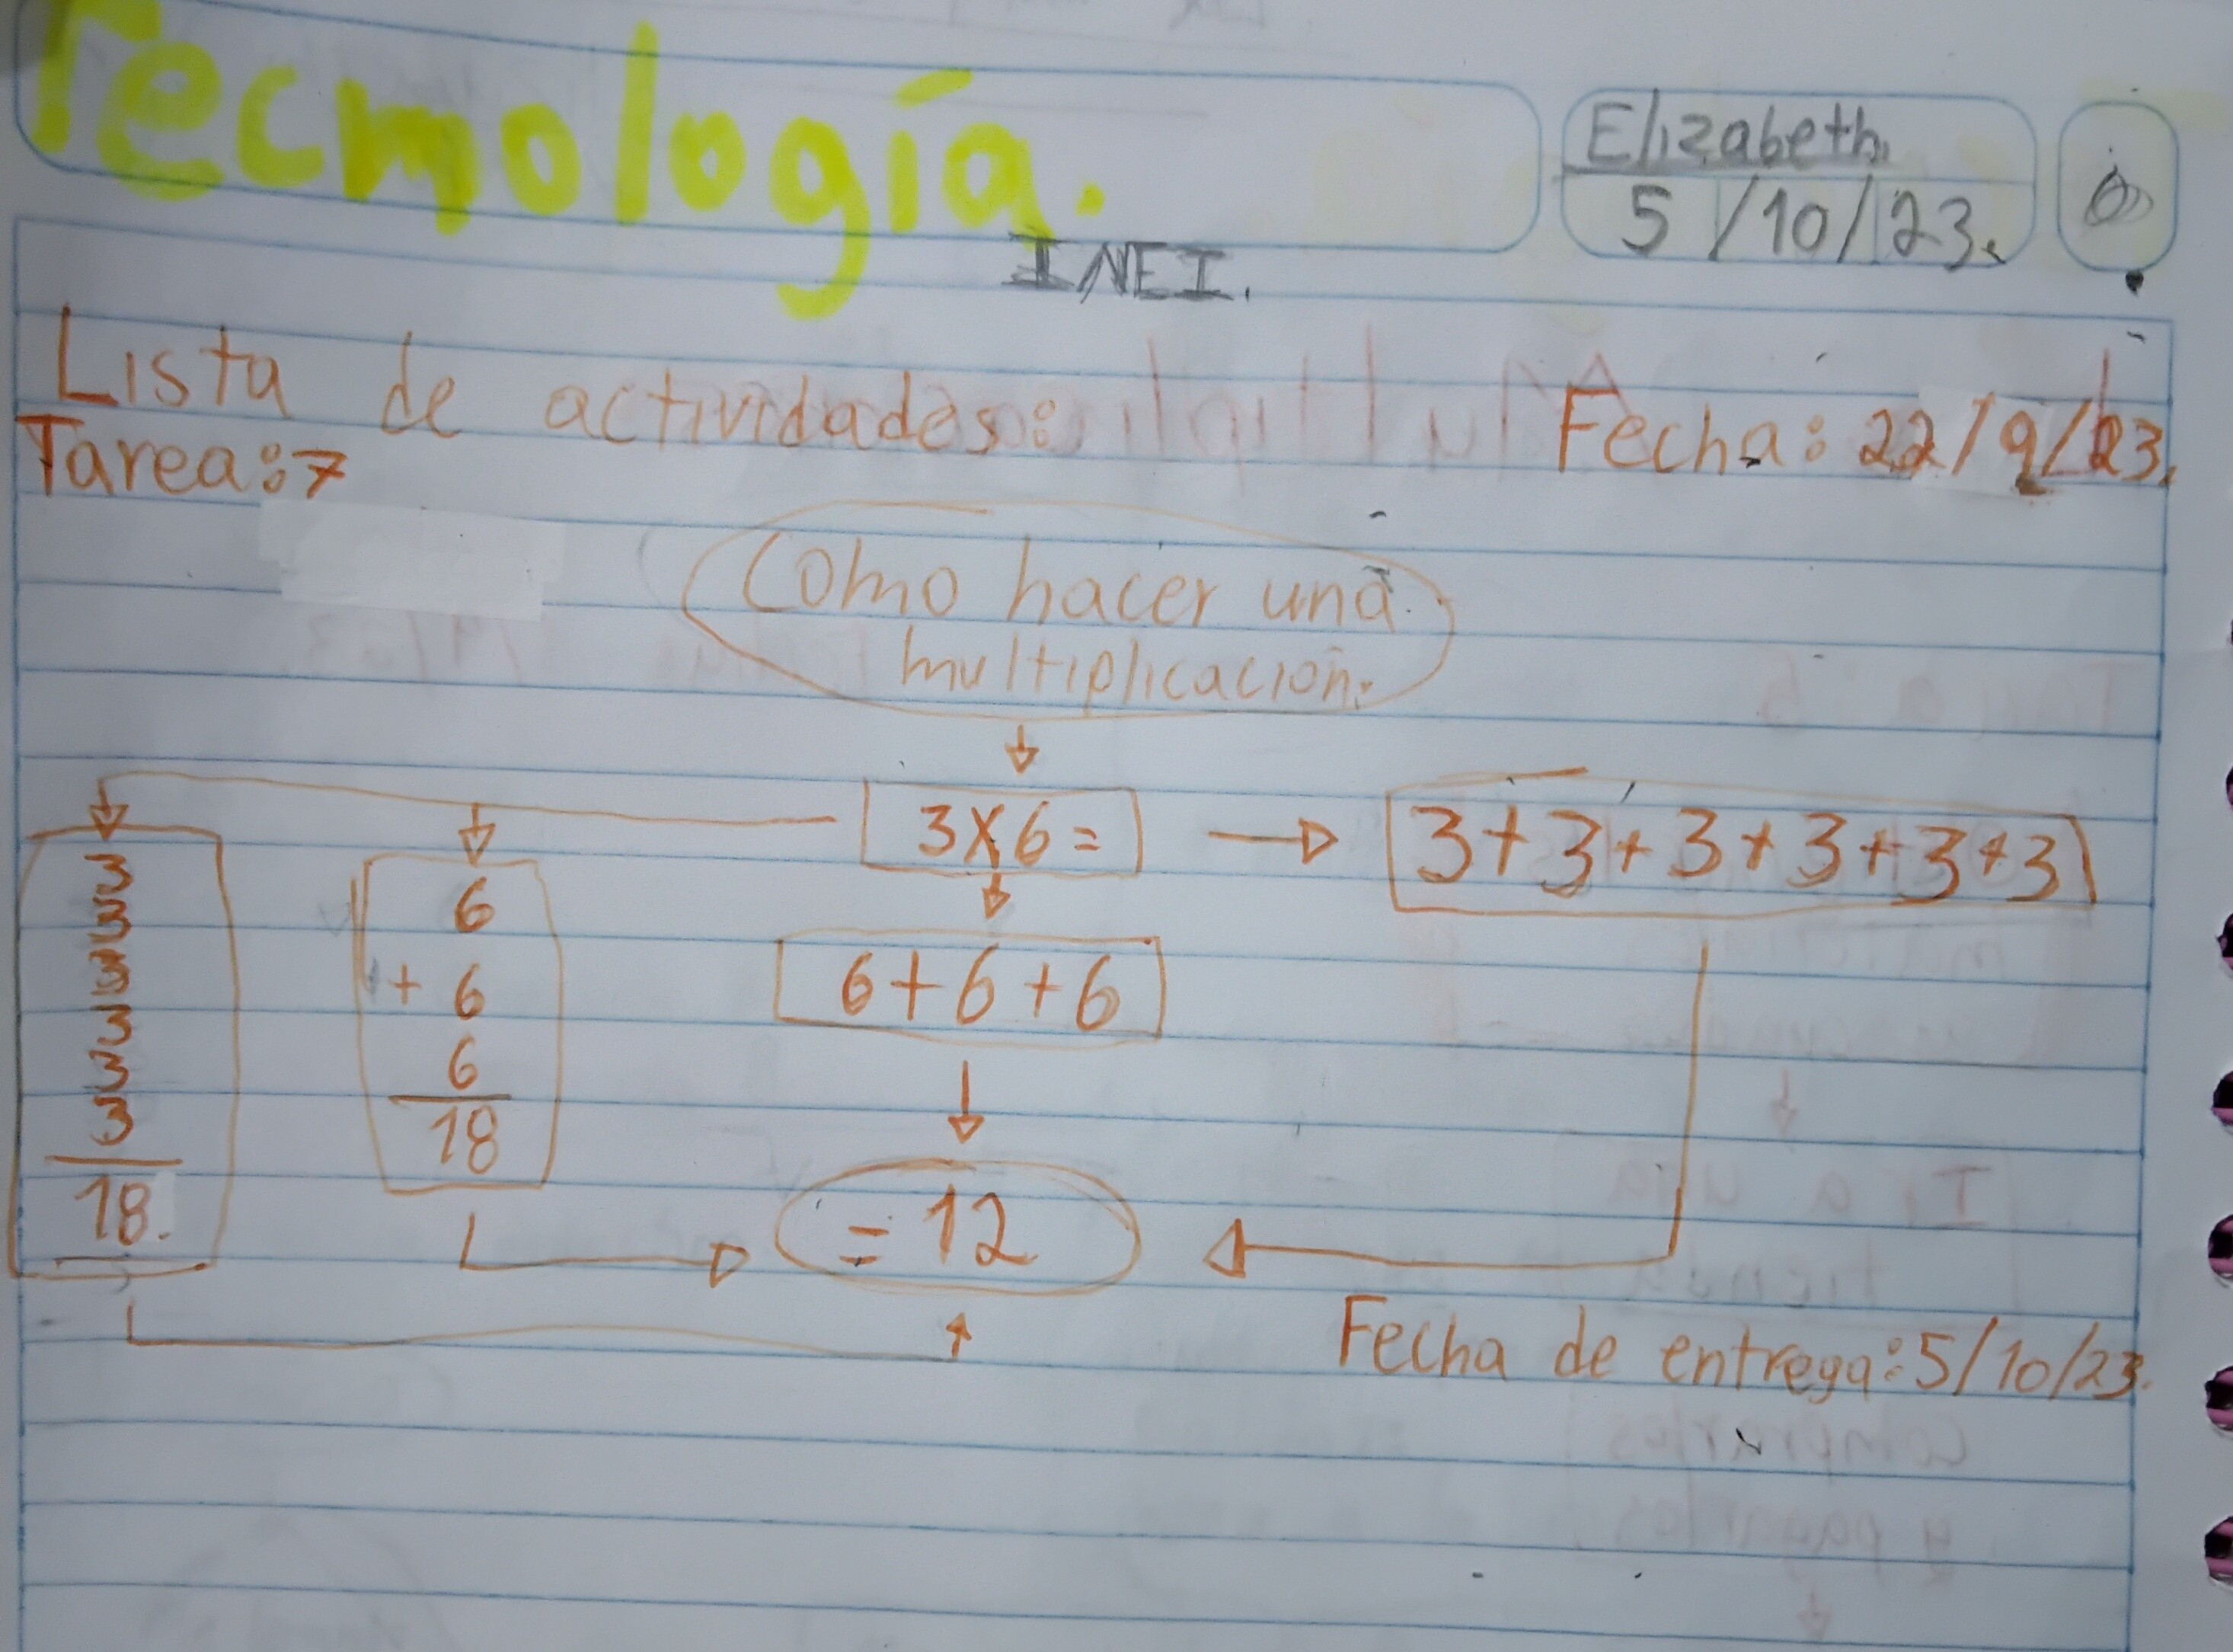 Tecmología.
Elizabeth.
5/10/23.
INEI.
Lista de actividades:
Fecha: 22/9/23.
Tarea:7
Como hacer una
multiplicación.
3x6=
3+3+3+3+3+3
6+6+6
3
3
3
3
3
3
18.
6
+ 6
6
18
= 12
Fecha de entrega:5/10/23.